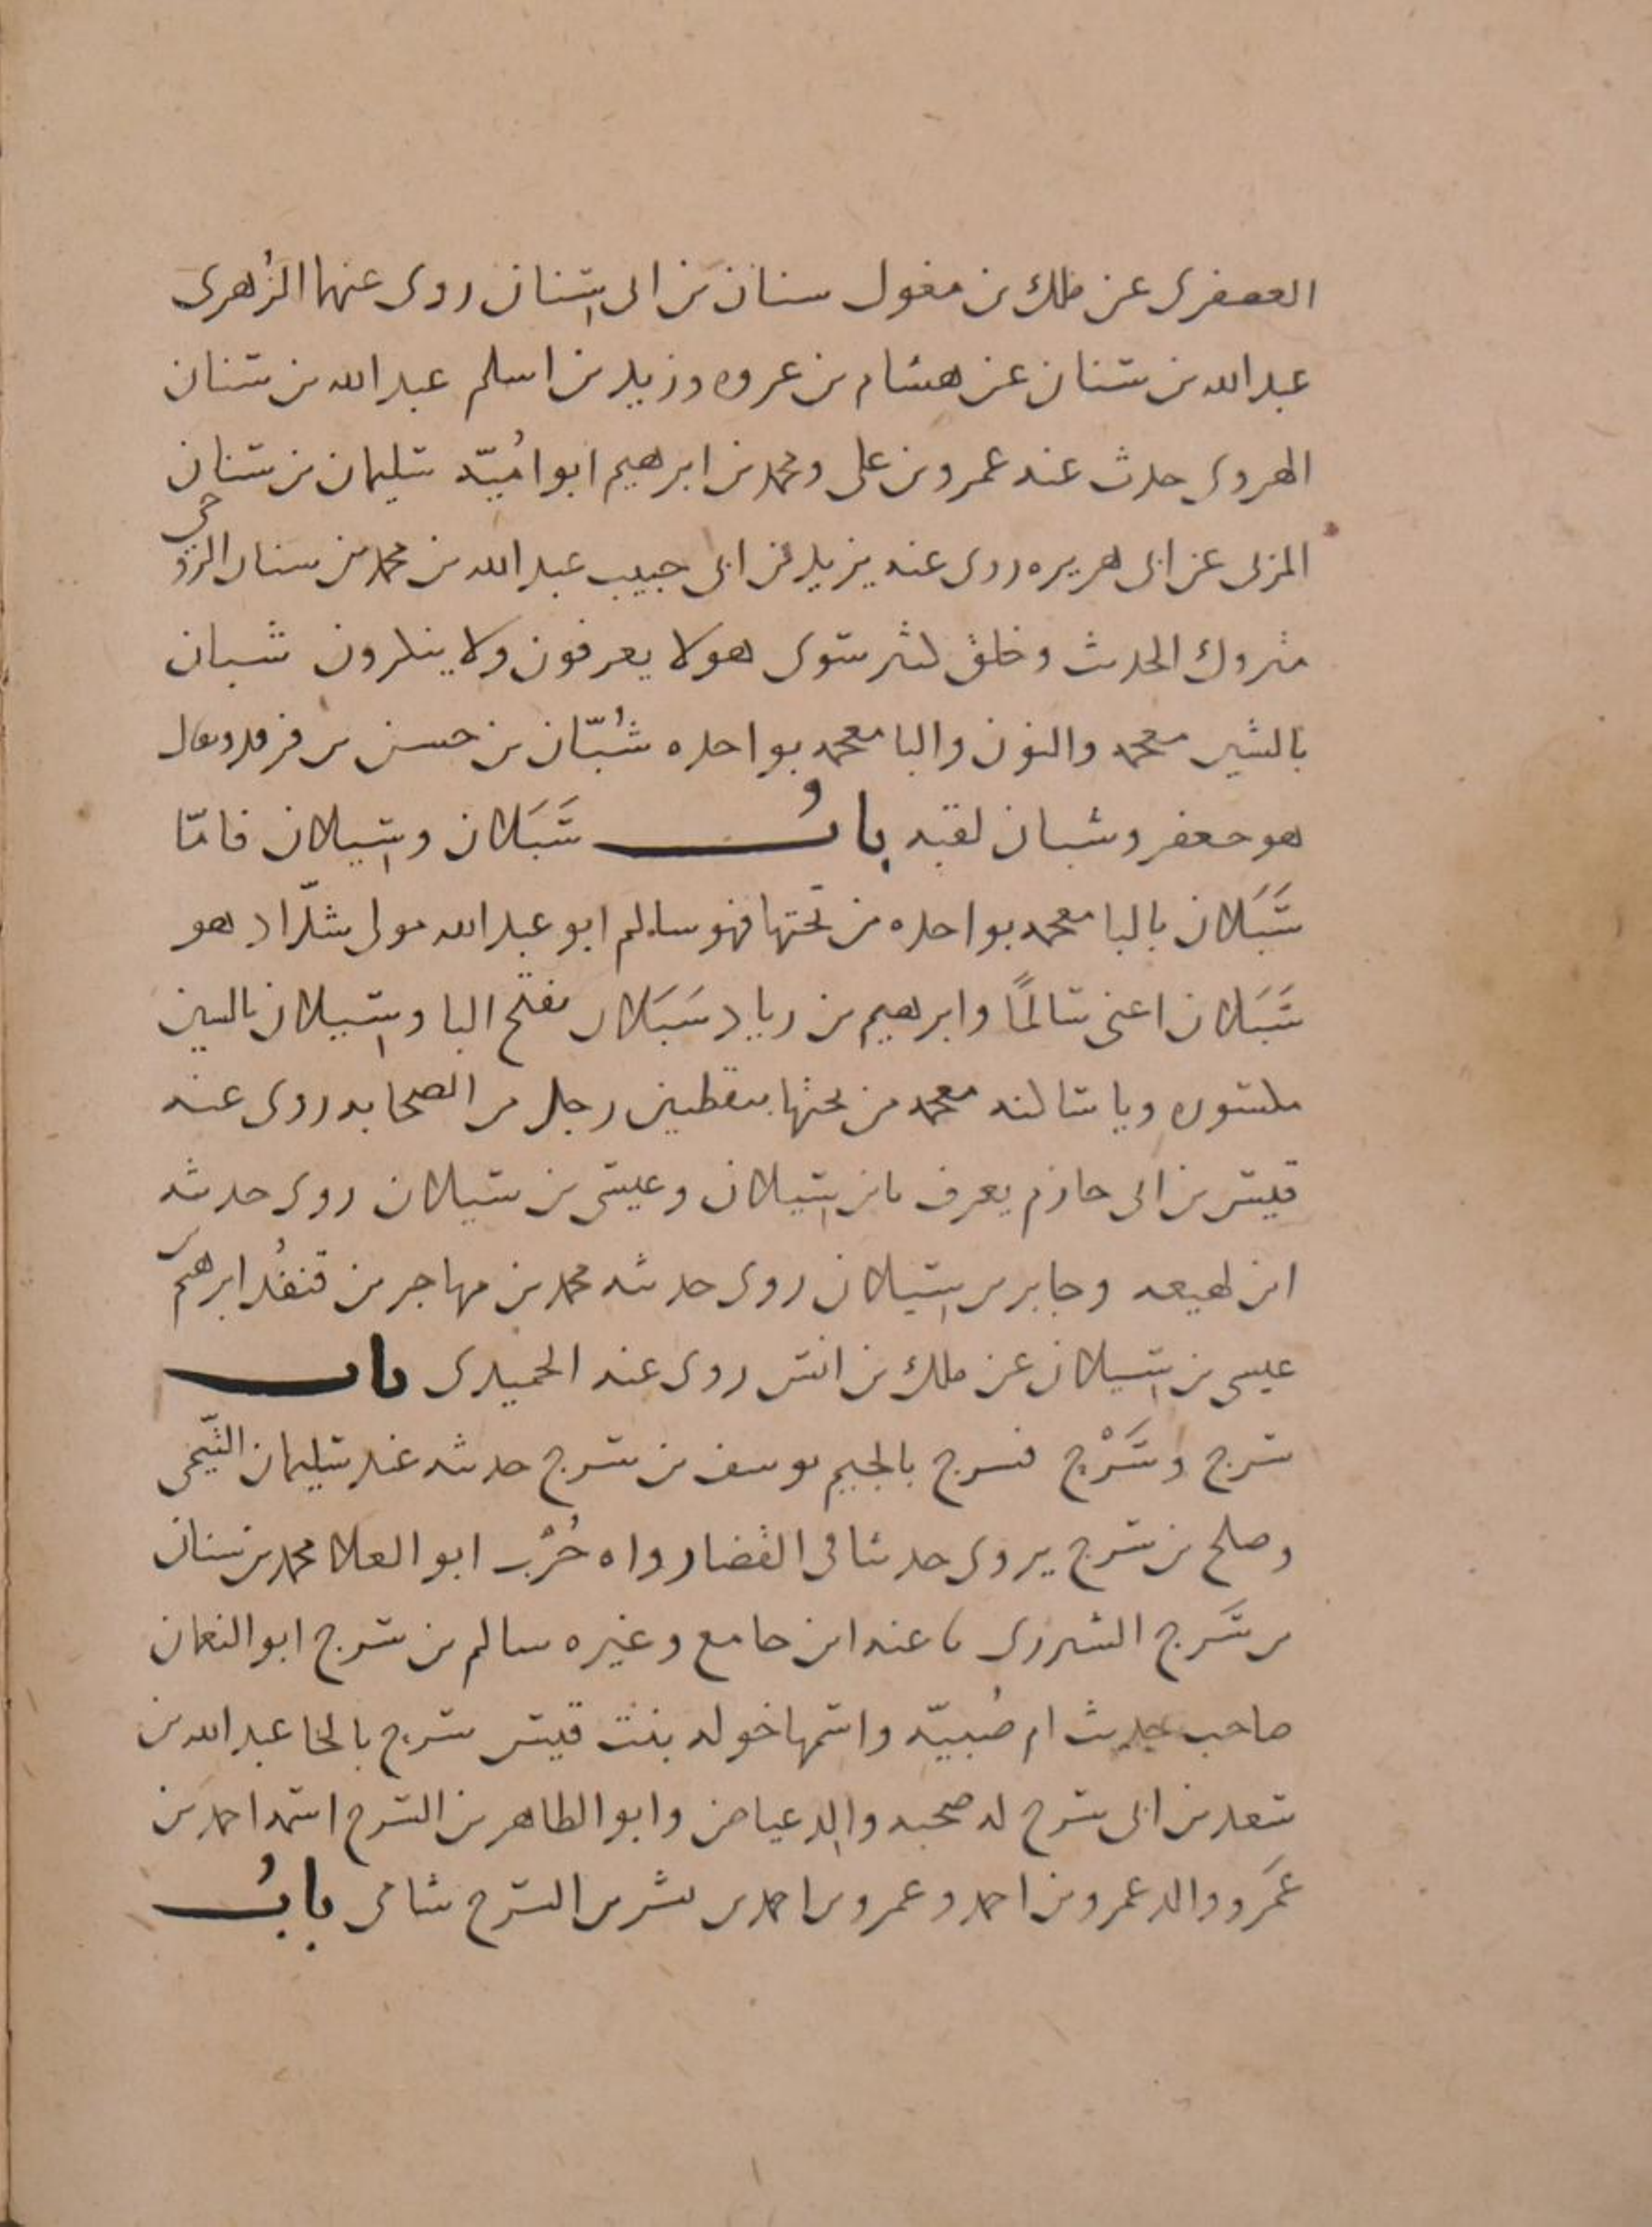 العصفرى عن ملك بن مغول سنان بن ابى سنان روى عنهما الزهرى
عبد الله بن سنان عن هشام بن عروه وزيد بن اسلم عبد الله بن سنان
الهروى حدث عنه عمرو بن على ومحمد بن ابرهيم ابو اُميّه سليمان بن سنان
المزنى عن ابى هريره روى عنه يزيد بن ابى حبيب عبد الله بن محمد بن سنان الروحى
متروك الحديث وخلق كثير سوى هولا يعرفون ولا ينكرون شبان
بالشين معجمه والنون والبا معجمه بواحده شُبّان بن حسن بن فرقد ويقال
هو جعفر وشبان لقبه بابُ سَبَلان وسِيلان فامّا
سَبَلان بالبا معجمه بواحده من تحتها فهو سالم ابو عبد الله مولى شدّاد هو
سَبَلان اعنى سالمًا وابرهيم بن زياد سَبَلان بفتح البا وسِيلان بالسين
مكسوره ويا ساكنه معجمه من تحتها بنقطين رجل من الصحابه روى عنه
قيس بن ابى حازم يعرف بابن سِيلان وعيسى بن سيلان روى حديثه
ابن لهيعه وجابر بن سِيلان روى حديثه محمد بن مهاجر بن قنفُد ابرهيم بن
عيسى بن سِيلان عن ملك بن انس روى عنه الحميدى باب
سرج وسَرْح فسرج بالجيم يوسف بن سرج حديثه عند سليمان التَّيمى
وصلح بن سرج يروى حديثا فى القضا رواه عنه ابو العلا محمد بن سنان
بن سَرج الشيزرى نا عنه ابن جامع وغيره سالم بن سرج ابو النعمان
صاحب حديث ام صُبيّه واسمها خوله بنت قيس سرح بالحا عبد الله بن
سعد بن ابى سرح له صحبه والد عياض وابو الطاهر بن السرح اسمه احمد بن
عَمرو والد عمرو بن احمد وعمرو بن احمد بن بشر بن السرح شامى بابُ